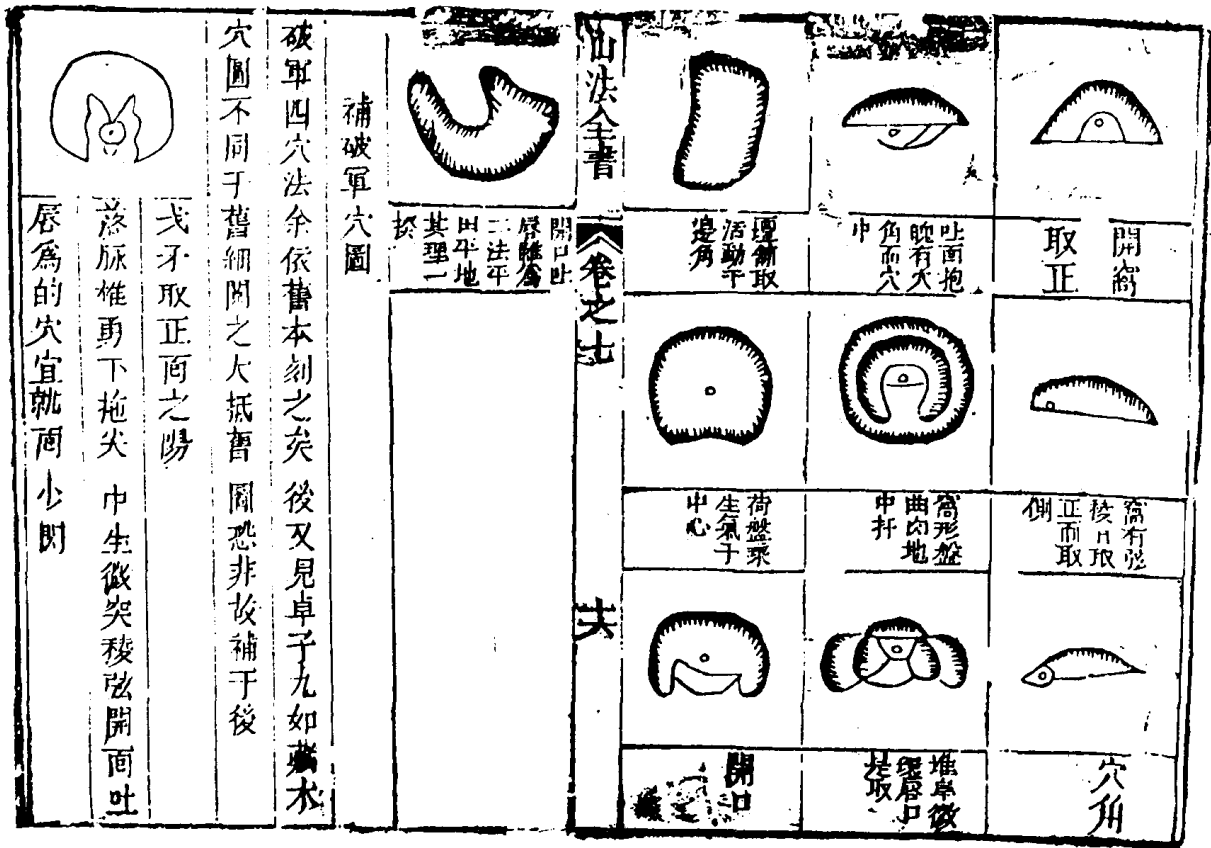 開窩
取正
窩有弦
稜
正而取
側
穴角
吐面抱
角而穴
中
窩形盤
曲肉地
中扦
堆阜微
唇口
是取
壇
活動于
邊角
荷盤聚
生氣于
中心
開口
山法全書
卷之七
六
開口吐
唇雖為
二法平
田平地
其理一
揆
補破軍穴圖
破軍四穴法余依舊本刻之矣後又見卓子九如藏本
穴圖不同于舊細閱之大抵舊圖恐非故補于後
戈矛取正面之陽
落脈雄勇下拖尖中生微突稜弦開面吐
唇為的穴宜就面小開